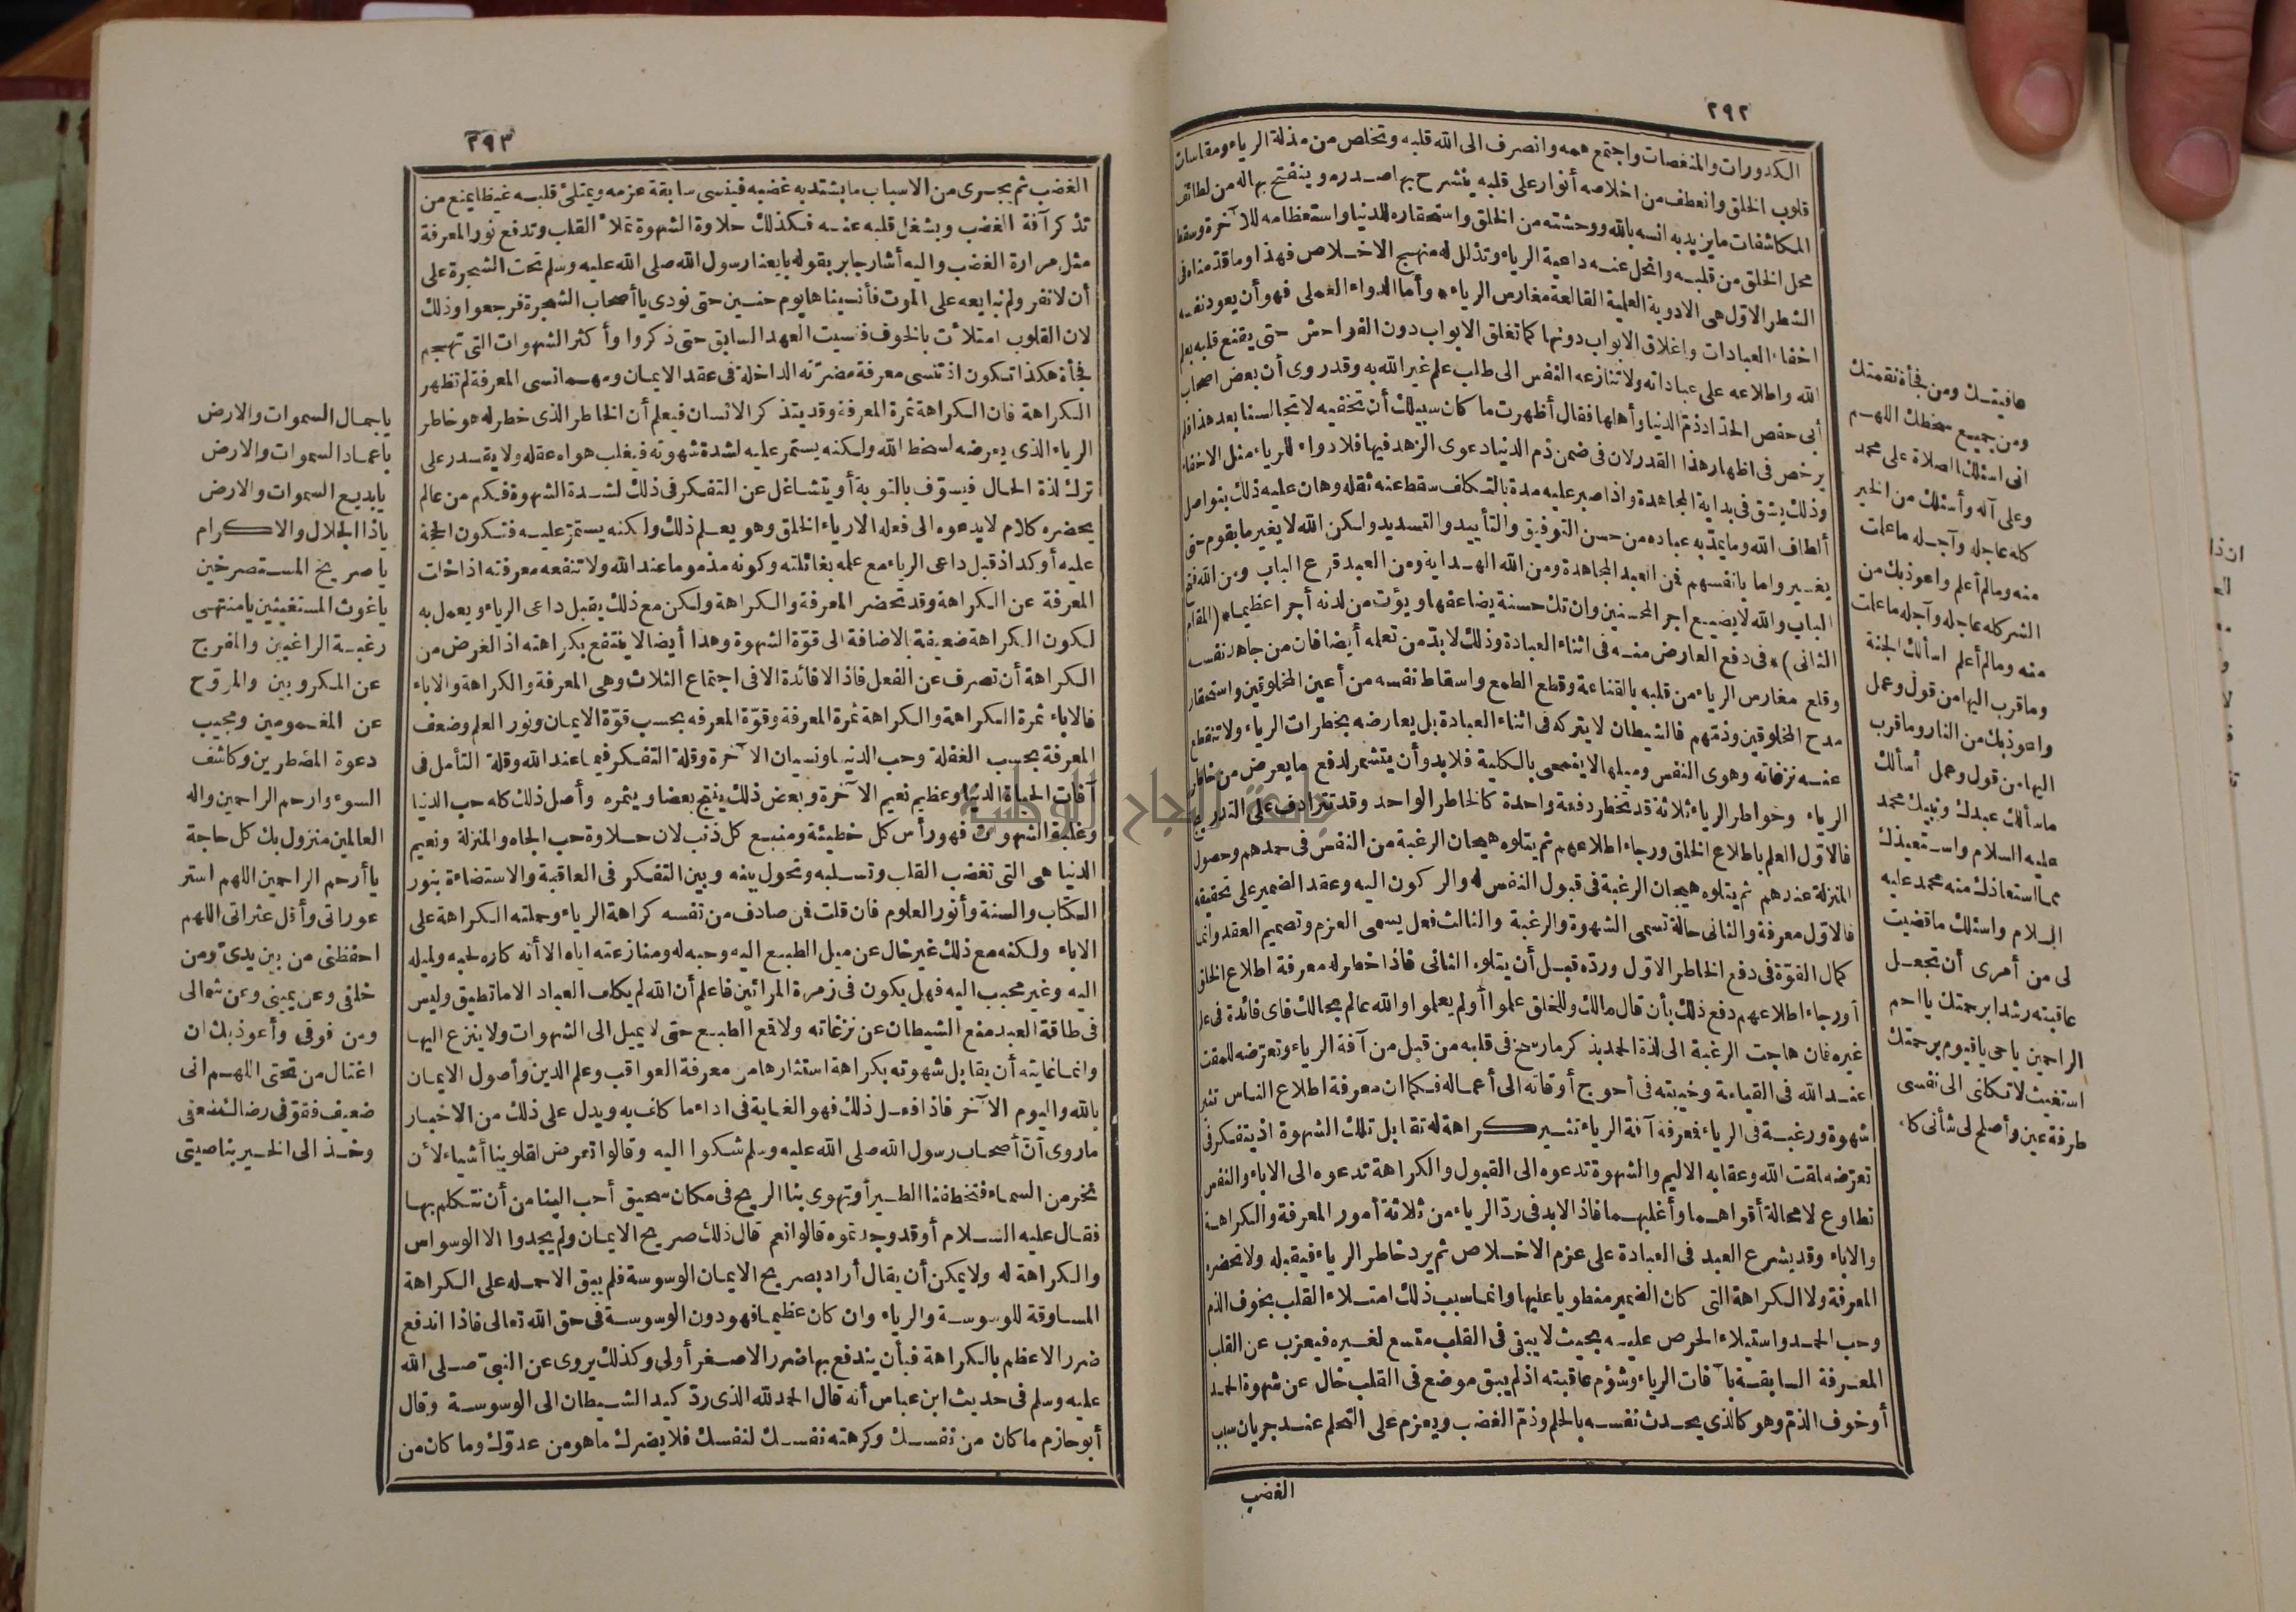 ٢٩٢
الكدورات والمنغصات واجتمع همه وانصرف الى الله قلبه وتخلص من مذلة الرياء ومقاسات
قلوب الخلق وانعطف من اخلاصه أنوار على قلبه ينشرح بها صدره وينفتح بها له من لطائف
المكاشفات ما يزيد به انسه بالله ووحشته من الخلق واستحقاره للدنيا واستعظامه للآخرة وسقط
محل الخلق من قلبه وانحل عنه داعية الرياء وتذلل له منهج الاخلاص فهذا وما قدمناه فى
الشطر الاول هى الادوية العلمية القالعة مغارس الرياء * وأما الدواء العملى فهو أن يعود نفسه
اخفاء العبادات واغلاق الابواب دونها كما تغلق الابواب دون الفواحش حتى يقنع قلبه بعلم
الله واطلاعه على عباداته ولا تنازعه النفس الى طلب علم غير الله به وقد روى أن بعض اصحاب
أبى حفص الحداد ذم الدنيا وأهلها فقال أظهرت ما كان سبيلك أن تخفيه لا تجالسنا بعد هذا فلم
يرخص فى اظهار هذا القدر لان فى ضمن ذم الدنيا دعوى الزهد فيها فلا دواء للرياء مثل الاخفاء
وذلك يشق فى بداية المجاهدة واذا صبر عليه مدة بالتكلف سقط عنه ثقله وهان عليه ذلك بتواصل
ألطاف الله وما يمد به عباده من حسن التوفيق والتأييد والتسديد ولكن الله لا يغير ما بقوم حتى
يغيروا ما بانفسهم فمن العبد المجاهدة ومن الله الهداية ومن العبد قرع الباب ومن الله فتح
الباب والله لا يضيع اجر المحسنين وان تك حسنة يضاعفها ويؤت من لدنه أجرا عظيما * (المقام
الثانى) * فى دفع العارض منه فى اثناء العبادة وذلك لا بد من تعلمه أيضا فان من جاهد نفسه
وقلع مغارس الرياء من قلبه بالقناعة وقطع الطمع واسقاط نفسه من أعين المخلوقين واستحقار
مدح المخلوقين وذمهم فالشيطان لا يتركه فى اثناء العبادة بل يعارضه بخطرات الرياء ولا تنقطع
عنه نزغاته وهوى النفس وميلها لا ينمحى بالكلية فلا بد وأن يتشمر لدفع ما يعرض من خاطر
الرياء وخواطر الرياء ثلاثة قد تخطر دفعة واحدة كالخاطر الواحد وقد تترادف على التدريج
فالاول العلم باطلاع الخلق ورجاء اطلاعهم ثم يتلوه هيجان الرغبة من النفس فى حمدهم وحصول
المنزلة عندهم ثم يتلوه هيجان الرغبة فى قبول النفس له والركون اليه وعقد الضمير على تحقيقه
فالاول معرفة والثانى حالة تسمى الشهوة والرغبة والثالث فعل يسمى العزم وتصميم العقد وانما
كمال القوة فى دفع الخاطر الاول ورده قبل أن يتلوه الثانى فاذا خطر له معرفة اطلاع الخلق
أو رجاء اطلاعهم دفع ذلك بأن قال مالك وللخلق علموا أو لم يعلموا والله عالم بحالك فاى فائدة فى علم
غيره فان هاجت الرغبة الى لذة الحمد يذكر ما رسخ فى قلبه من قبل من آفة الرياء وتعرضه للمقت
عند الله فى القيامة وخيبته فى أحوج أوقاته الى أعماله فكما ان معرفة اطلاع الناس تثير
شهوة ورغبة فى الرياء فمعرفة آفة الرياء تثير كراهة له تقابل تلك الشهوة اذ يتفكر فى
تعرضه لمقت الله وعقابه الاليم والشهوة تدعوه الى القبول والكراهة تدعوه الى الاباء والنفس
تطاوع لا محالة أقواهما وأغلبهما فاذا لابد فى رد الرياء من ثلاثة أمور المعرفة والكراهة
والاباء وقد يشرع العبد فى العبادة على عزم الاخلاص ثم يرد خاطر الرياء فيقبله ولا تحضره
المعرفة ولا الكراهة التى كان الضمير منطويا عليها وانما سبب ذلك امتلاء القلب بخوف الذم
وحب الحمد واستيلاء الحرص عليه بحيث لا يبقى فى القلب متسع لغيره فيعزب عن القلب
المعرفة السابقة بآفات الرياء وشؤم عاقبته اذ لم يبق موضع فى القلب خال عن شهوة الحمد
أو خوف الذم وهو كالذى يحدث نفسه بالحلم وذم الغضب ويعزم على التحلم عند جريان سبب
الغضب
عافيتك ومن فجأة نقمتك
ومن جميع سخطك اللهم
انى اسئلك الصلاة على محمد
وعلى آله وأسئلك من الخير
كله عاجله وآجله ما علمت
منه وما لم أعلم واعوذ بك من
الشر كله عاجله وآجله ما علمت
منه وما لم أعلم اسألك الجنة
وما قرب اليها من قول وعمل
واعوذ بك من النار وما قرب
اليها من قول وعمل أسألك
ما سألك عبدك ونبيك محمد
عليه السلام واستعيذك
مما استعاذك منه محمد عليه
السلام واسئلك ما قضيت
لى من أمرى أن تجعل
عاقبته رشدا برحمتك يا ارحم
الراحمين يا حى يا قيوم برحمتك
استغيث لا تكلنى الى نفسى
طرفة عين وأصلح لى شأنى كله
٢٩٣
الغضب ثم يجرى من الاسباب ما يشتد به غضبه فينسى سابقة عزمه ويمتلئ قلبه غيظا يمنع من
تذكر آفة الغضب ويشغل قلبه عنه فكذلك حلاوة الشهوة تملأ القلب وتدفع نور المعرفة
مثل مرارة الغضب واليه أشار جابر بقوله بايعنا رسول الله صلى الله عليه وسلم تحت الشجرة على
أن لا نفر ولم نبايعه على الموت فأنسيناها يوم حنين حتى نودى يا أصحاب الشجرة فرجعوا وذلك
لان القلوب امتلأت بالخوف فنسيت العهد السابق حتى ذكروا وأكثر الشهوات التى تهجم
فجأة هكذا تكون اذ تنسى معرفة مضرته الداخلة فى عقد الايمان ومهما نسى المعرفة لم تظهر
الكراهة فان الكراهة ثمرة المعرفة وقد يتذكر الانسان فيعلم أن الخاطر الذى خطر له هو خاطر
الرياء الذى يعرضه لسخط الله ولكنه يستمر عليه لشدة شهوته فيغلب هواه عقله ولا يقدر على
ترك لذة الحال فيسوف بالتوبة أو يتشاغل عن التفكر فى ذلك لشدة الشهوة فكم من عالم
يحضره كلام لا يدعوه الى فعله الا رياء الخلق وهو يعلم ذلك ولكنه يستمر عليه فتكون الحجة
عليه أوكد اذ قبل داعى الرياء مع علمه بغائلته وكونه مذموما عند الله ولا تنفعه معرفته اذا خلت
المعرفة عن الكراهة وقد تحضر المعرفة والكراهة ولكن مع ذلك يقبل داعى الرياء ويعمل به
لكون الكراهة ضعيفة بالاضافة الى قوة الشهوة وهذا أيضا لا ينتفع بكراهته اذ الغرض من
الكراهة أن تصرف عن الفعل فاذا لا فائدة الا فى اجتماع الثلاث وهى المعرفة والكراهة والاباء
فالاباء ثمرة الكراهة والكراهة ثمرة المعرفة وقوة المعرفة بحسب قوة الايمان ونور العلم وضعف
المعرفة بحسب الغفلة وحب الدنيا ونسيان الآخرة وقلة التفكر فيما عند الله وقلة التأمل فى
آفات الحياة الدنيا وعظيم نعيم الآخرة وبعض ذلك ينتج بعضا ويثمره وأصل ذلك كله حب الدنيا
وغلبة الشهوات فهو رأس كل خطيئة ومنبع كل ذنب لان حلاوة حب الجاه والمنزلة ونعيم
الدنيا هى التى تغضب القلب وتسلبه وتحول بينه وبين التفكر فى العاقبة والاستضاءة بنور
الكتاب والسنة وأنور العلوم فان قلت فمن صادف من نفسه كراهة الرياء وحملته الكراهة على
الاباء ولكنه مع ذلك غير خال عن ميل الطبع اليه وحبه له ومنازعته اياه الا أنه كاره لحبه ولميله
اليه وغير محبب اليه فهل يكون فى زمرة المرائين فاعلم أن الله لم يكلف العباد الا ما تطيق وليس
فى طاقة العبد منع الشيطان عن نزغاته ولا قمع الطبع حتى لا يميل الى الشهوات ولا ينزع اليها
وانما غايته أن يقابل شهوته بكراهة استثارها من معرفة العواقب وعلم الدين وأصول الايمان
بالله واليوم الآخر فاذا فعل ذلك فهو الغاية فى اداء ما كلف به ويدل على ذلك من الاخبار
ما روى أن أصحاب رسول الله صلى الله عليه وسلم شكوا اليه وقالوا تعرض لقلوبنا أشياء لأن
نخر من السماء فتخطفنا الطير أو تهوى بنا الريح فى مكان سحيق أحب الينا من أن نتكلم بها
فقال عليه السلام أو قد وجدتموه قالوا نعم قال ذلك صريح الايمان ولم يجدوا الا الوسواس
والكراهة له ولا يمكن أن يقال أراد بصريح الايمان الوسوسة فلم يبق الا حمله على الكراهة
المساوقة للوسوسة والرياء وان كان عظيما فهو دون الوسوسة فى حق الله تعالى فاذا اندفع
ضرر الاعظم بالكراهة فبأن يندفع بها ضرر الاصغر أولى وكذلك يروى عن النبى صلى الله
عليه وسلم فى حديث ابن عباس أنه قال الحمد لله الذى رد كيد الشيطان الى الوسوسة وقال
أبو حازم ما كان من نفسك وكرهته نفسك لنفسك فلا يضرك ما هو من عدوك وما كان من
يا جمال السموات والارض
يا عماد السموات والارض
يا بديع السموات والارض
يا ذا الجلال والاكرام
يا صريخ المستصرخين
يا غوث المستغيثين يا منتهى
رغبة الراغبين والمفرج
عن المكروبين والمروح
عن المغمومين ومجيب
دعوة المضطرين وكاشف
السوء وارحم الراحمين واله
العالمين منزول بك كل حاجة
يا أرحم الراحمين اللهم استر
عوراتى وأقل عثراتى اللهم
احفظنى من بين يدى ومن
خلفى وعن يمينى وعن شمالى
ومن فوقى وأعوذ بك ان
اغتال من تحتى اللهم انى
ضعيف فقو فى رضاك ضعفى
وخذ الى الخير بناصيتى
جامعة النجاح الوطنية